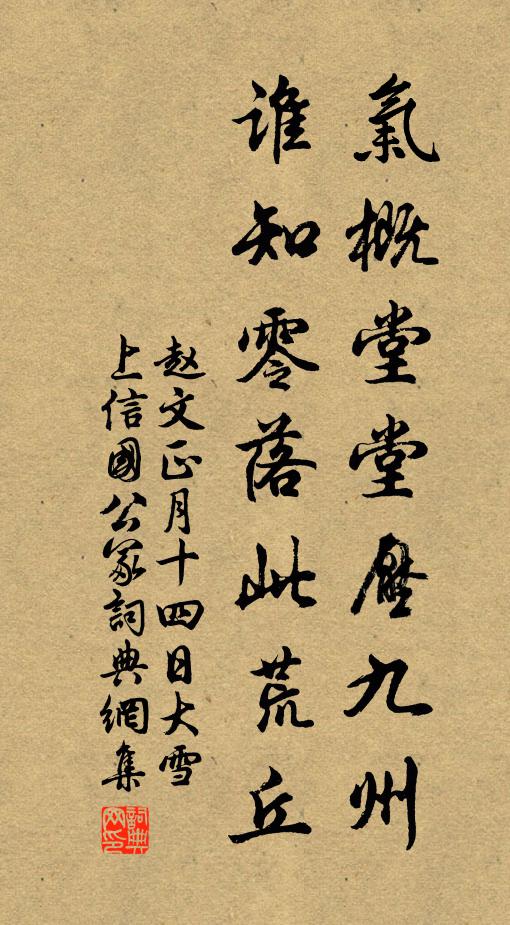 氣概堂堂壓九州
誰知零落此荒丘
赵文正月十四日大雪
上信國公冢詞典網集
詞典網印